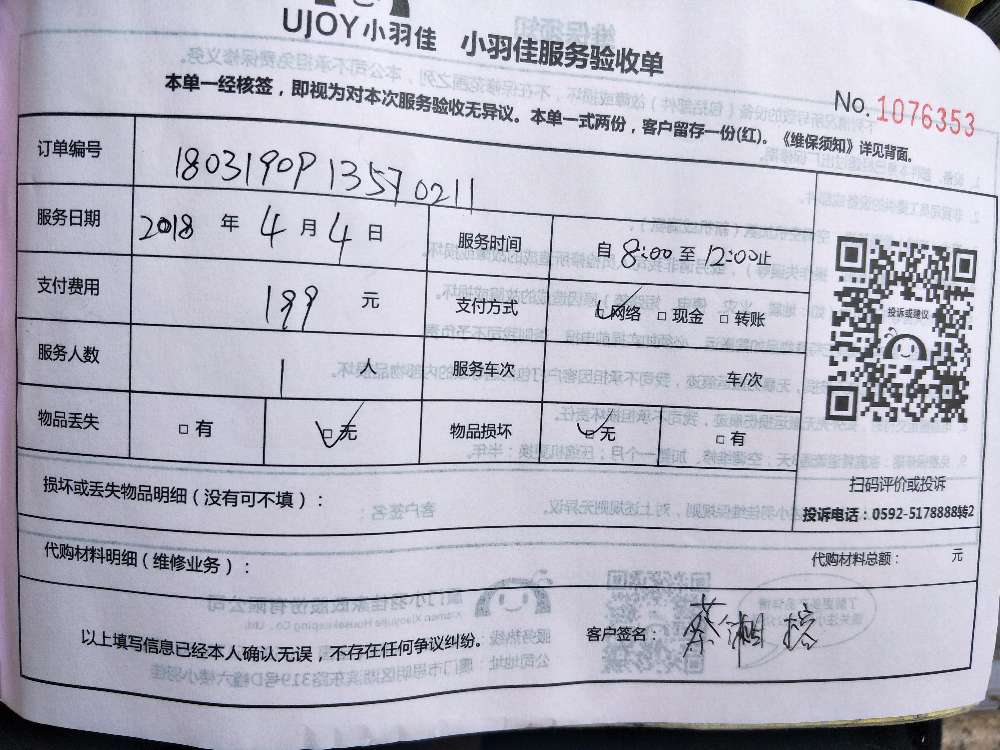 UJOY小羽佳 小羽佳服务验收单
本单一经核签，即视为对本次服务验收无异议。本单一式两份，客户留存一份(红)。《维保须知》详见背面。
No. 1076353
订单编号 1803190913570211
服务日期 2018 年 4 月 4 日 服务时间 自 8:00 至 12:00止
支付费用 199 元 支付方式 □网络 □现金 □转账
服务人数 1 人 服务车次 车/次
物品丢失 □有 □无 物品损坏 □无 □有
投诉或建议
扫码评价或投诉
投诉电话：0592-5178888转2
损坏或丢失物品明细（没有可不填）：
代购材料明细（维修业务）： 代购材料总额： 元
以上填写信息已经本人确认无误，不存在任何争议纠纷。 客户签名： 蔡湘